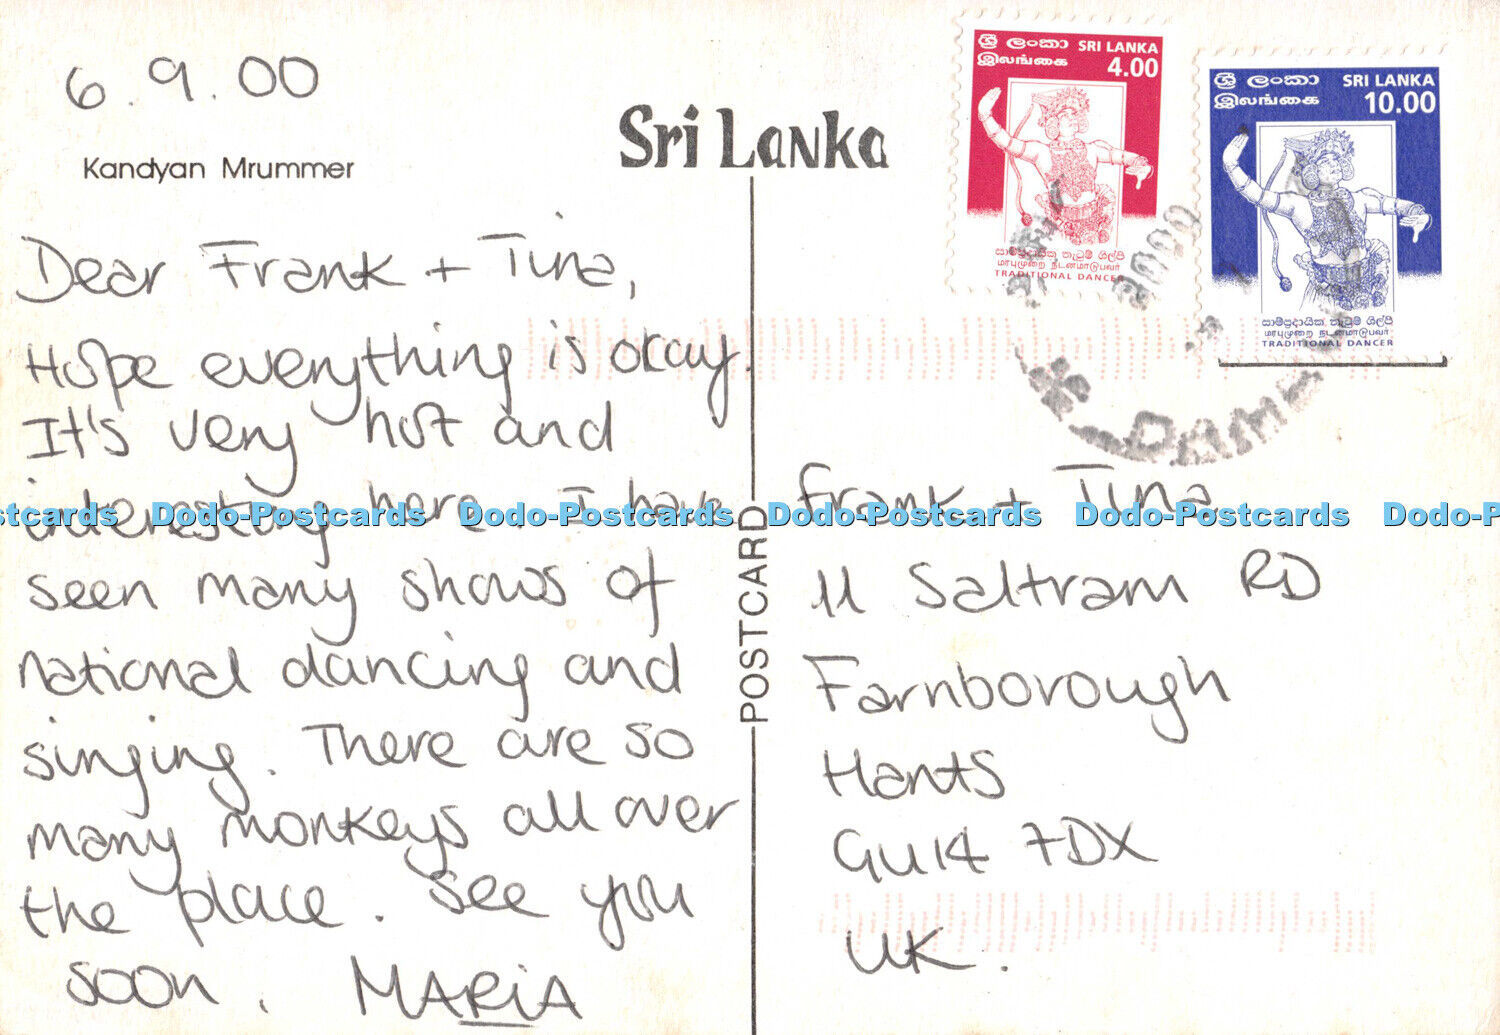 6.9.00
Kandyan Mrummer
Sri Lanka
ශ්‍රී ලංකා SRI LANKA
இலங்கை 4.00
සාම්ප්‍රදායික නැටුම් ශිල්පී
மரபுமுறை நடனமாடுபவர்
TRADITIONAL DANCER
ශ්‍රී ලංකා SRI LANKA
இலங்கை 10.00
සාම්ප්‍රදායික නැටුම් ශිල්පී
மரபுமுறை நடனமாடுபவர்
TRADITIONAL DANCER
2000
Dear Frank + Tina,
Hope everything is okay.
It's very hot and
interesting here. I have
seen many shows of
national dancing and
singing. There are so
many monkeys all over
the place. See you
soon. MARIA
POSTCARD
Frank + Tina
11 Saltram RD
Farnborough
Hants
GU14 7DX
UK.
stcards Dodo-Postcards Dodo-Postcards Dodo-Postcards Dodo-Postcards Dodo-P